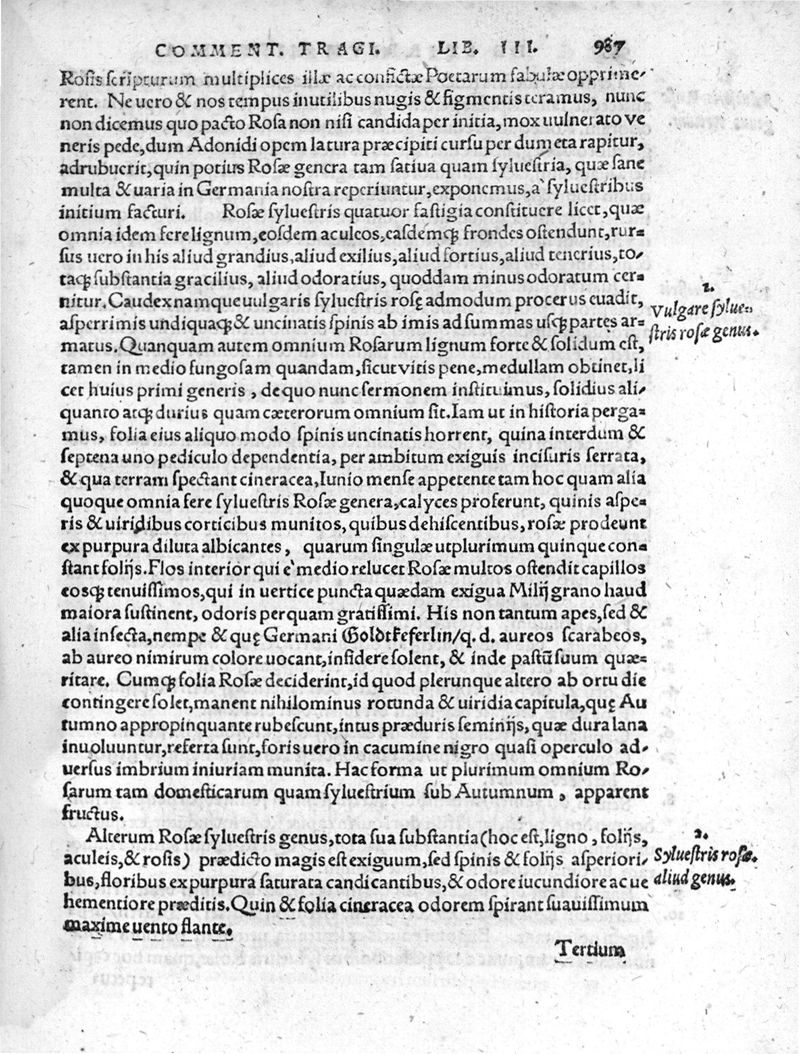 COMMENT. TRAGI. LIB. III. 987
Rosis scripturum multiplices illæ ac confictæ Poetarum fabulæ opprime-
rent. Ne uero & nos tempus inutilibus nugis & figmentis teramus, nunc
non dicemus quo pacto Rosa non nisi candida per initia, mox uulnerato ve
neris pede, dum Adonidi opem latura præcipiti cursu per dumeta rapitur,
adrubuerit, quin potius Rosæ genera tam satiua quam syluestria, quæ sane
multa & uaria in Germania nostra reperiuntur, exponemus, a' syluestribus
initium facturi. Rosæ syluestris quatuor fastigia constituere licet, quæ
omnia idem fere lignum, eosdem aculeos, easdemq; frondes ostendunt, rur-
sus uero in his aliud grandius, aliud exilius, aliud fortius, aliud tenerius, to-
taq; substantia gracilius, aliud odoratius, quoddam minus odoratum cer-
nitur. Caudex namque uulgaris syluestris rosę admodum procerus euadit,
asperrimis undiquaq; & uncinatis spinis ab imis ad summas usq; partes ar-
matus. Quanquam autem omnium Rosarum lignum forte & solidum est,
tamen in medio fungosam quandam, sicut vitis pene, medullam obtinet, li
cet huius primi generis, de quo nunc sermonem instituimus, solidius ali-
quanto atq; durius quam cæterorum omnium sit. Iam ut in historia perga-
mus, folia eius aliquo modo spinis uncinatis horrent, quina interdum &
septena uno pediculo dependentia, per ambitum exiguis incisuris serrata,
& qua terram spectant cineracea, Iunio mense appetente tam hoc quam alia
quoque omnia fere syluestris Rosæ genera, calyces proferunt, quinis aspe-
ris & uiridibus corticibus munitos, quibus dehiscentibus, rosæ prodeunt
ex purpura diluta albicantes, quarum singulæ utplurimum quinque con-
stant folijs. Flos interior qui e' medio relucet Rosæ multos ostendit capillos
eosq; tenuissimos, qui in uertice puncta quædam exigua Milij grano haud
maiora sustinent, odoris perquam gratissimi. His non tantum apes, sed &
alia insecta, nempe & quę Germani Goldtkeferlin/ q. d. aureos scarabeos,
ab aureo nimirum colore uocant, insidere solent, & inde pastū suum quæ-
ritare. Cumq; folia Rosæ deciderint, id quod plerunque altero ab ortu die
contingere solet, manent nihilominus rotunda & uiridia capitula, quę Au
tumno appropinquante rubescunt, intus præduris seminijs, quæ dura lana
inuoluuntur, referta sunt, foris uero in cacumine nigro quasi operculo ad-
uersus imbrium iniuriam munita. Hac forma ut plurimum omnium Ro-
sarum tam domesticarum quam syluestrium sub Autumnum, apparent
fructus.
Alterum Rosæ syluestris genus, tota sua substantia (hoc est, ligno, folijs,
aculeis, & rosis) prædicto magis est exiguum, sed spinis & folijs asperiori-
bus, floribus ex purpura saturata candicantibus, & odore iucundiore ac ue
hementiore præditis. Quin & folia cineracea odorem spirant suauissimum
maxime uento flante.
Tertium
1.
Vulgare sylue-
stris rosæ genus.
2.
Syluestris rosæ
aliud genus.